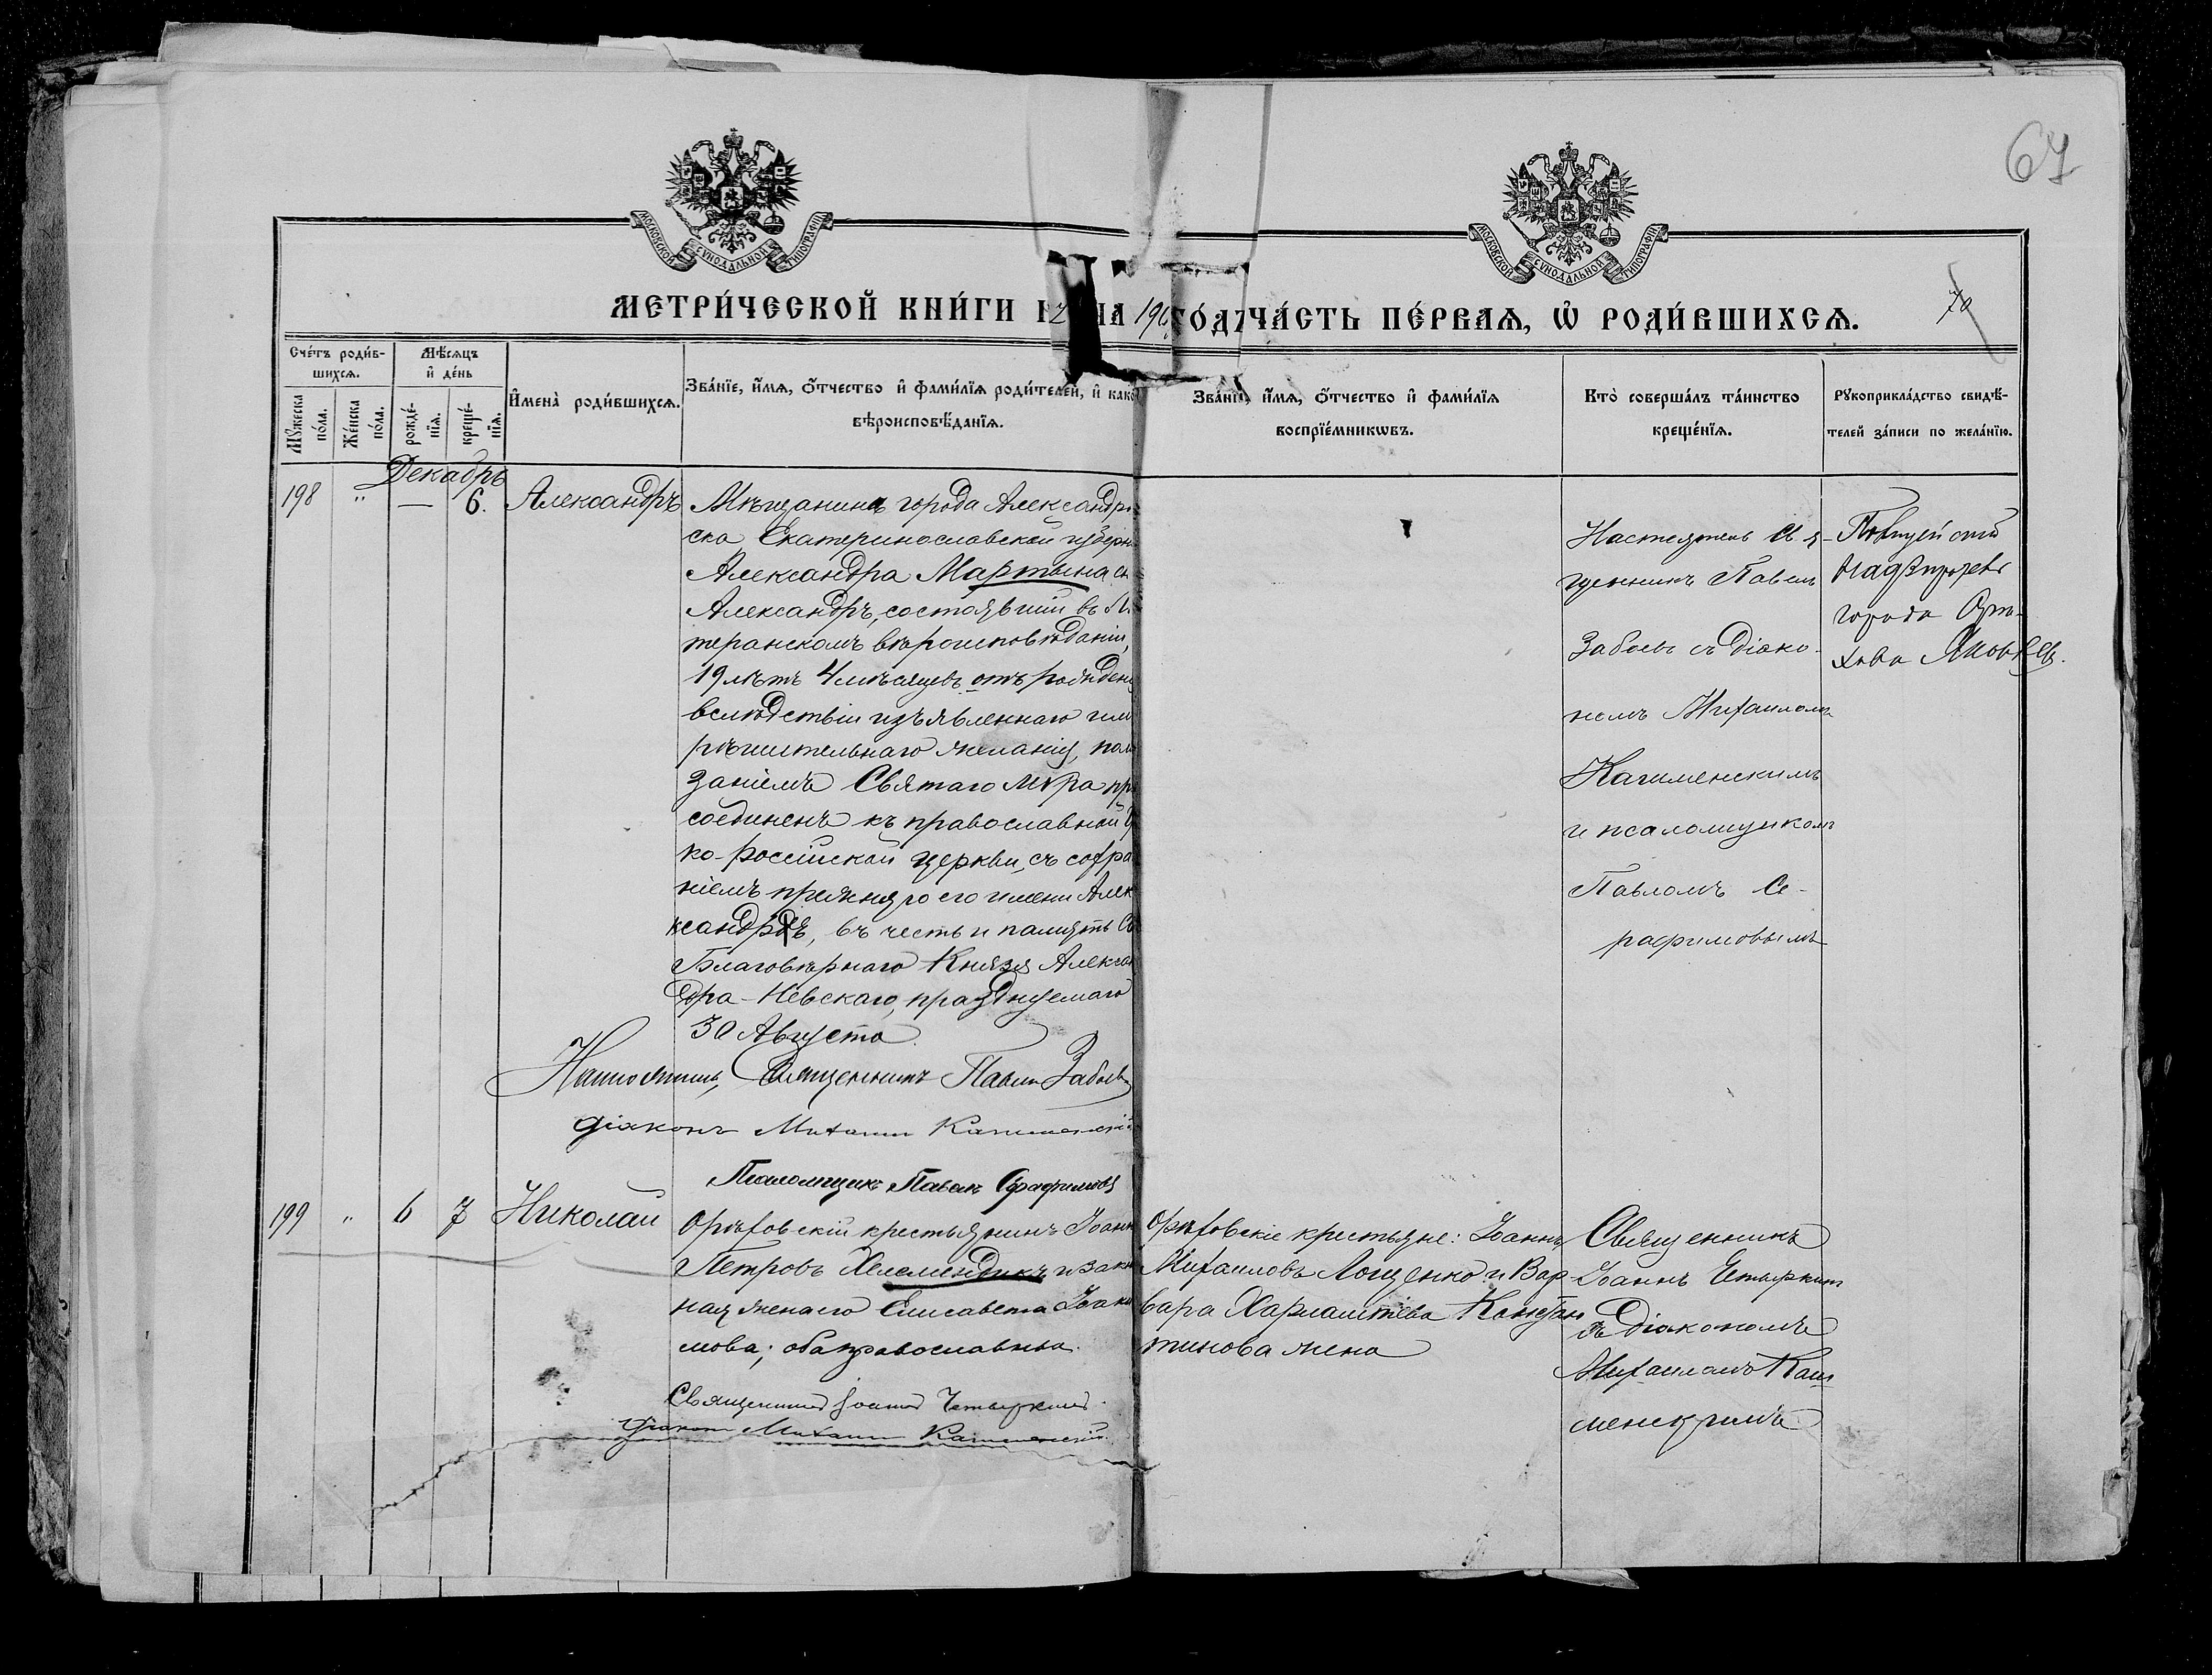 67
МОСКОВСКОЙ СУНОДАЛЬНОЙ ТИПОГРАФІИ
МОСКОВСКОЙ СУНОДАЛЬНОЙ ТИПОГРАФІИ
МЕТРИ́ЧЕСКОЙ КНИ́ГИ НА 190 ГО́ДЪ ЧА́СТЬ ПЕ́РВАѦ, Ѡ РОДИ́ВШИХСѦ.
70
Сче́тъ роди́в-
шихсѧ.
Мѣ́сѧцъ
и҆ де́нь
Мꙋ́жеска
по́ла.
Же́нска
по́ла.
рожде́-
нїѧ.
креще́-
нїѧ.
И҆мена̀ роди́вшихсѧ.
Зва́нїе, и҆́мѧ, ѻ҆́тчество и҆ фами́лїѧ роди́телей, и҆ како
вѣроисповѣ́данїѧ.
Зва́нїе, и҆́мѧ, ѻ҆́тчество и҆ фами́лїѧ
воспрїе́мникѡвъ.
Кто̀ соверша́лъ та́инство
креще́нїѧ.
Рꙋкоприкла́дство свидѣ́-
телей за́писи по жела́нїю.
Декабрь
198 " — 6. Александръ
Мѣщанина города Александро
ска Екатеринославской губерн
Александра Мартына сы
Александръ, состоявшій въ Лю
теранскомъ вѣроисповѣданіи,
19 лѣтъ 4 мѣсяцевъ отъ рожден
вслѣдствіи изъявленнаго имъ
рѣшительнаго желанія, пома
заніемъ Святаго Мѵра при
соединенъ къ православной Гре
ко-Россійской церкви, съ сохра
ніемъ прежняго его имени Алек
ксандръ, въ честь и память Св
Благовѣрнаго Князя Алексан
дра-Невскаго, празднуемаго
30 Августа.
Настоятель, Священникъ Павелъ Забоевъ
Діаконъ Михаилъ Кашменскій
Псаломщикъ Павелъ Серафимовъ
Настоятель Свя-
щенникъ Павелъ
Забоевъ съ діако-
номъ Михаиломъ
Кашменскимъ
и псаломщикомъ
Павломъ Се-
рафимовымъ
Полицейскій
Надзиратель
города Орѣ-
хова Яковлев.
199 " 6 7 Николай
Орѣховскій крестьянинъ Іоаннъ
Петровъ Хелемендикъ и закон
ная жена его Елисавета Іоаки
мова; оба православные.
Священникъ Іоаннъ Четыркинъ.
Діаконъ Михаилъ Кашменскій.
Орѣховскіе крестьяне: Іоаннъ
Михаиловъ Лощенко и Вар-
вара Харлампіева Констан
тинова жена
Священникъ
Іоаннъ Четыркин
съ Діакономъ
Михаиломъ Каш
менскимъ